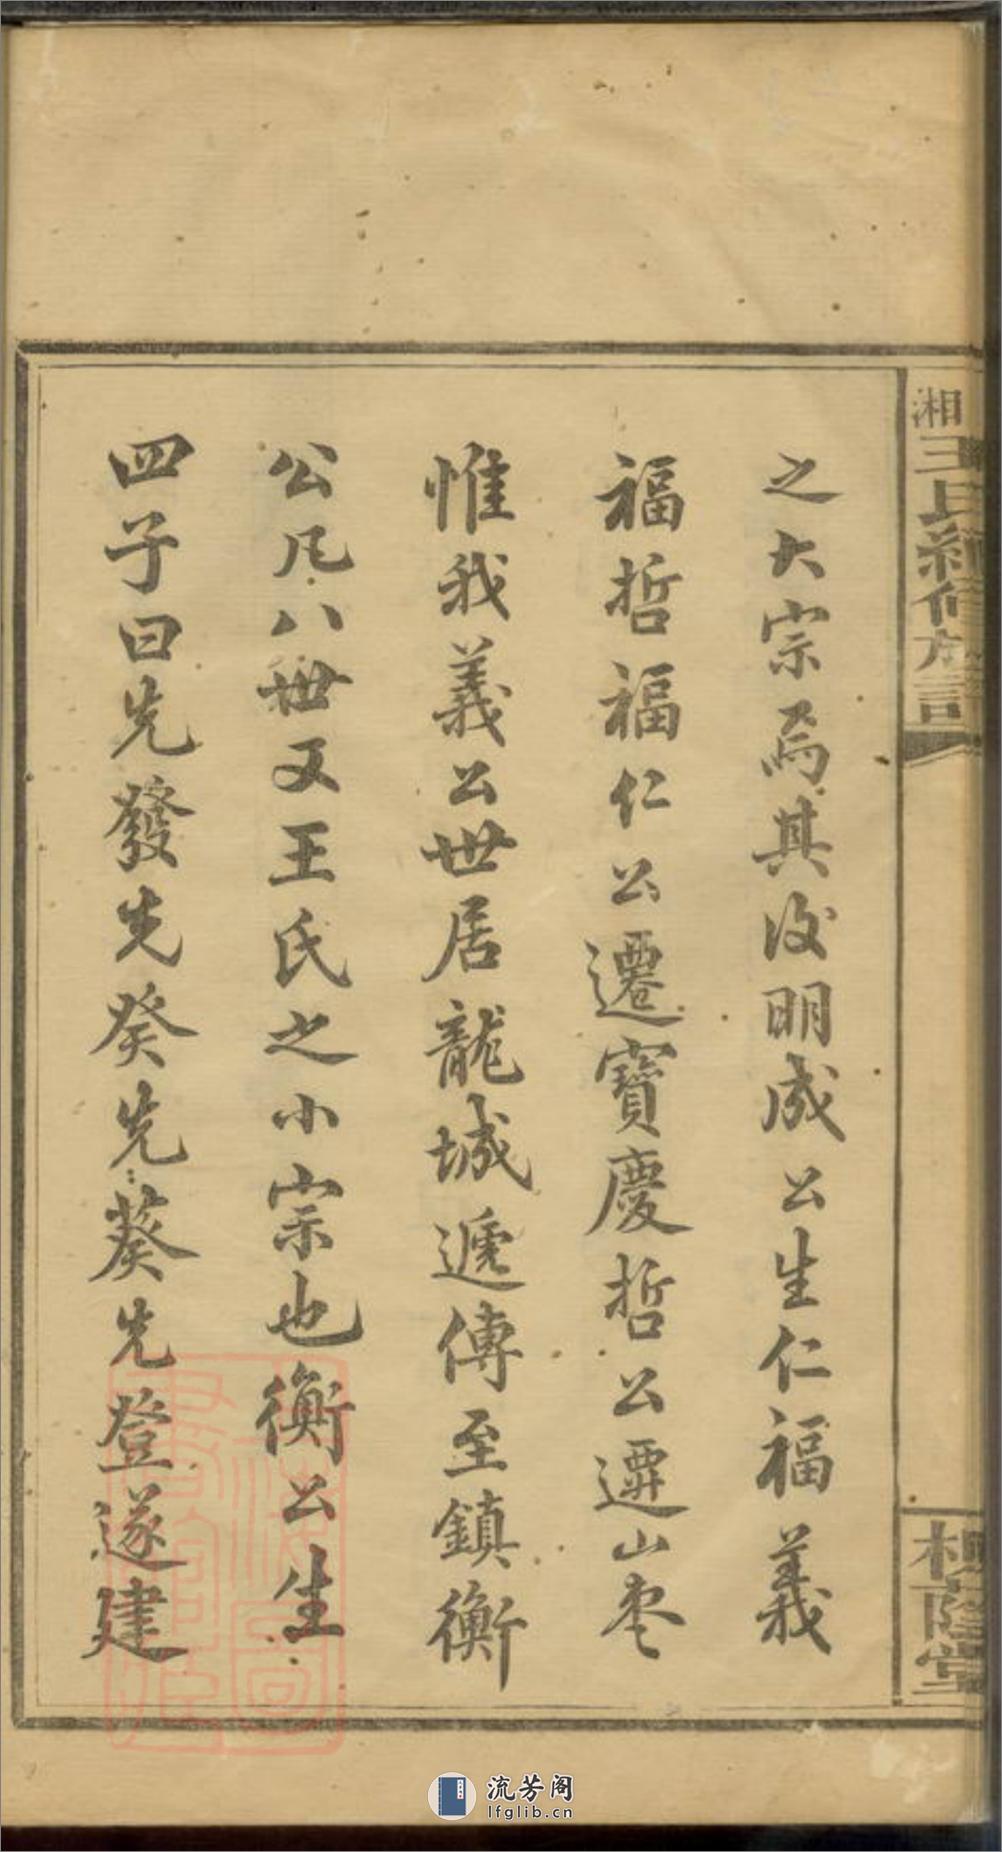 湘王氏續修族譜
之大宗焉其後明成公生仁福義
福哲福仁公遷寶慶哲公遷山棗
惟我義公世居龍城遞傳至鎮衡
公凡八世又王氏之小宗也衡公生
四子曰先發先癸先葵先登遂建
槐蔭堂
流芳阁
lfglib.cn